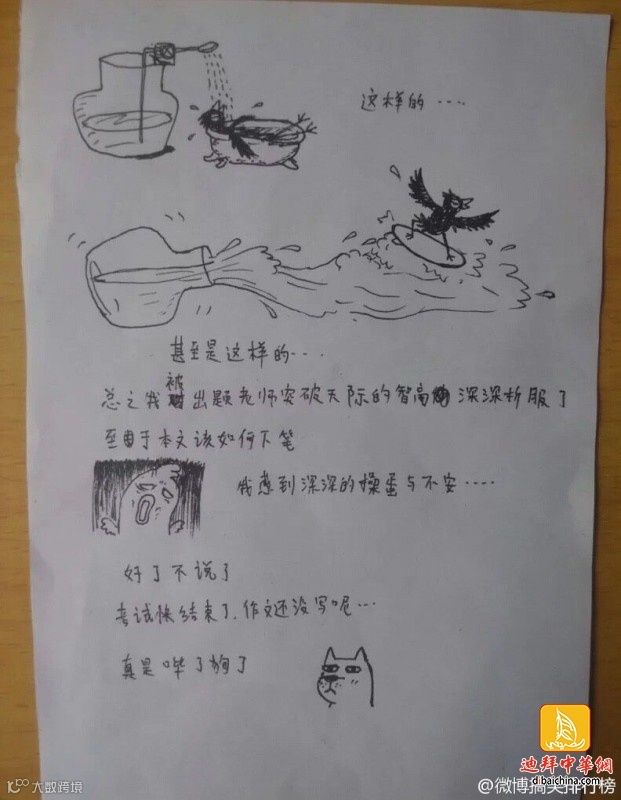 这样的····
甚至是这样的····
总之我被出题老师突破天际的智商深深折服了
至于本文该如何下笔
我感到深深的操蛋与不安····
好了不说了
考试快结束了，作文还没写呢···
真是哔了狗了
迪拜中華網
dibaichina.com
大数跨境
@微博搞笑排行榜